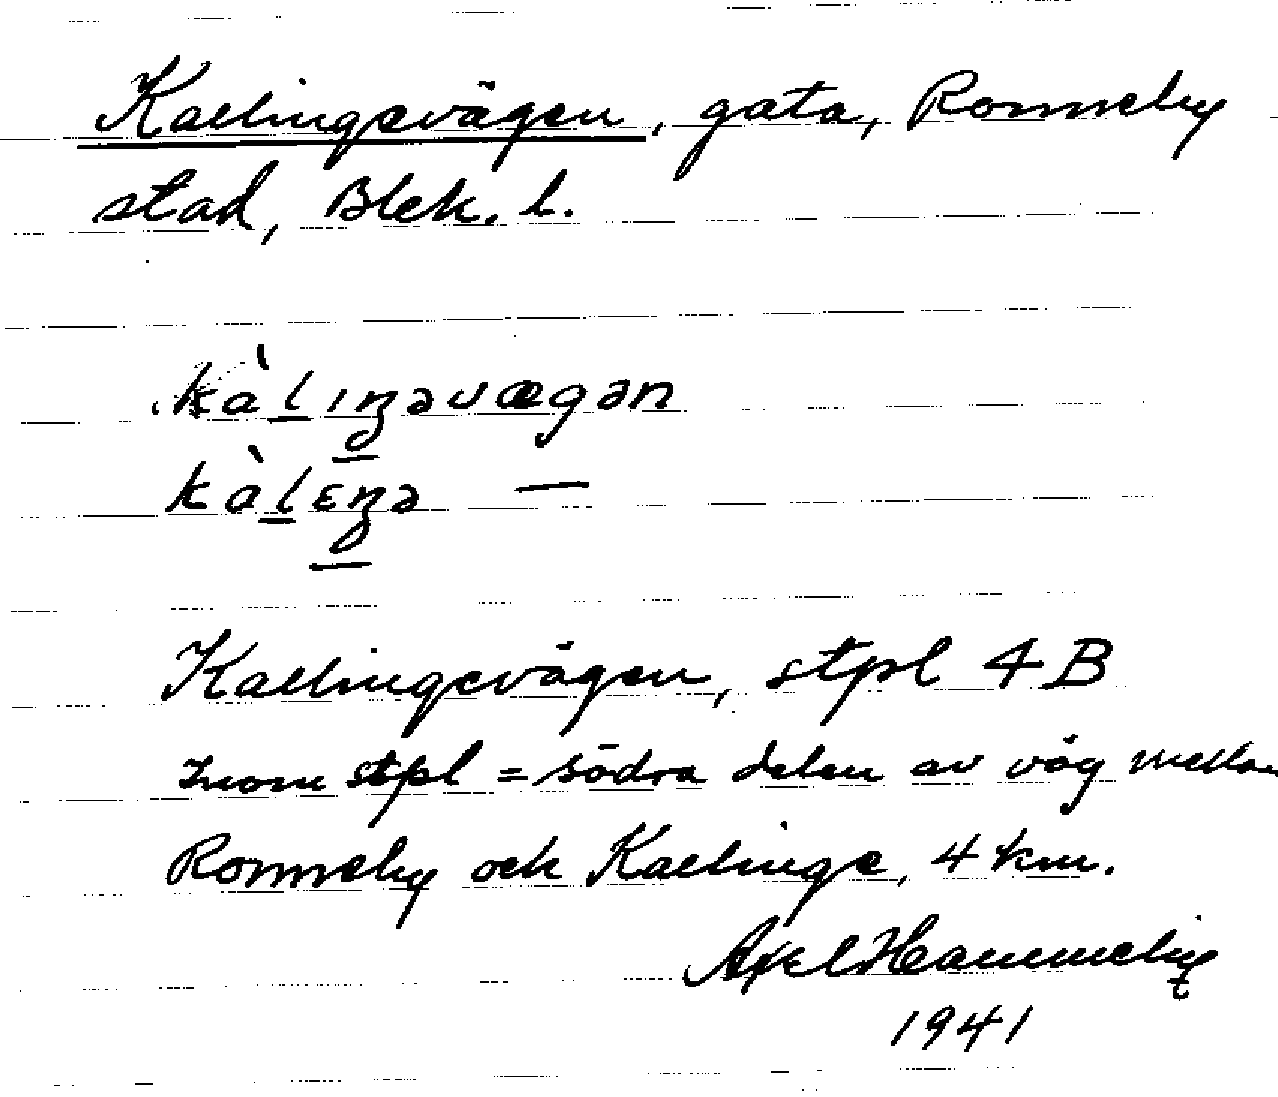 Kallingevägen, gata, Ronneby
stad, Blek. l.
kàlıŋəvægən
kàlɛŋə —
Kallingevägen, stpl 4 B
Inom stpl = södra delen av väg mellan
Ronneby och Kallinge, 4 km.
Axel
1941